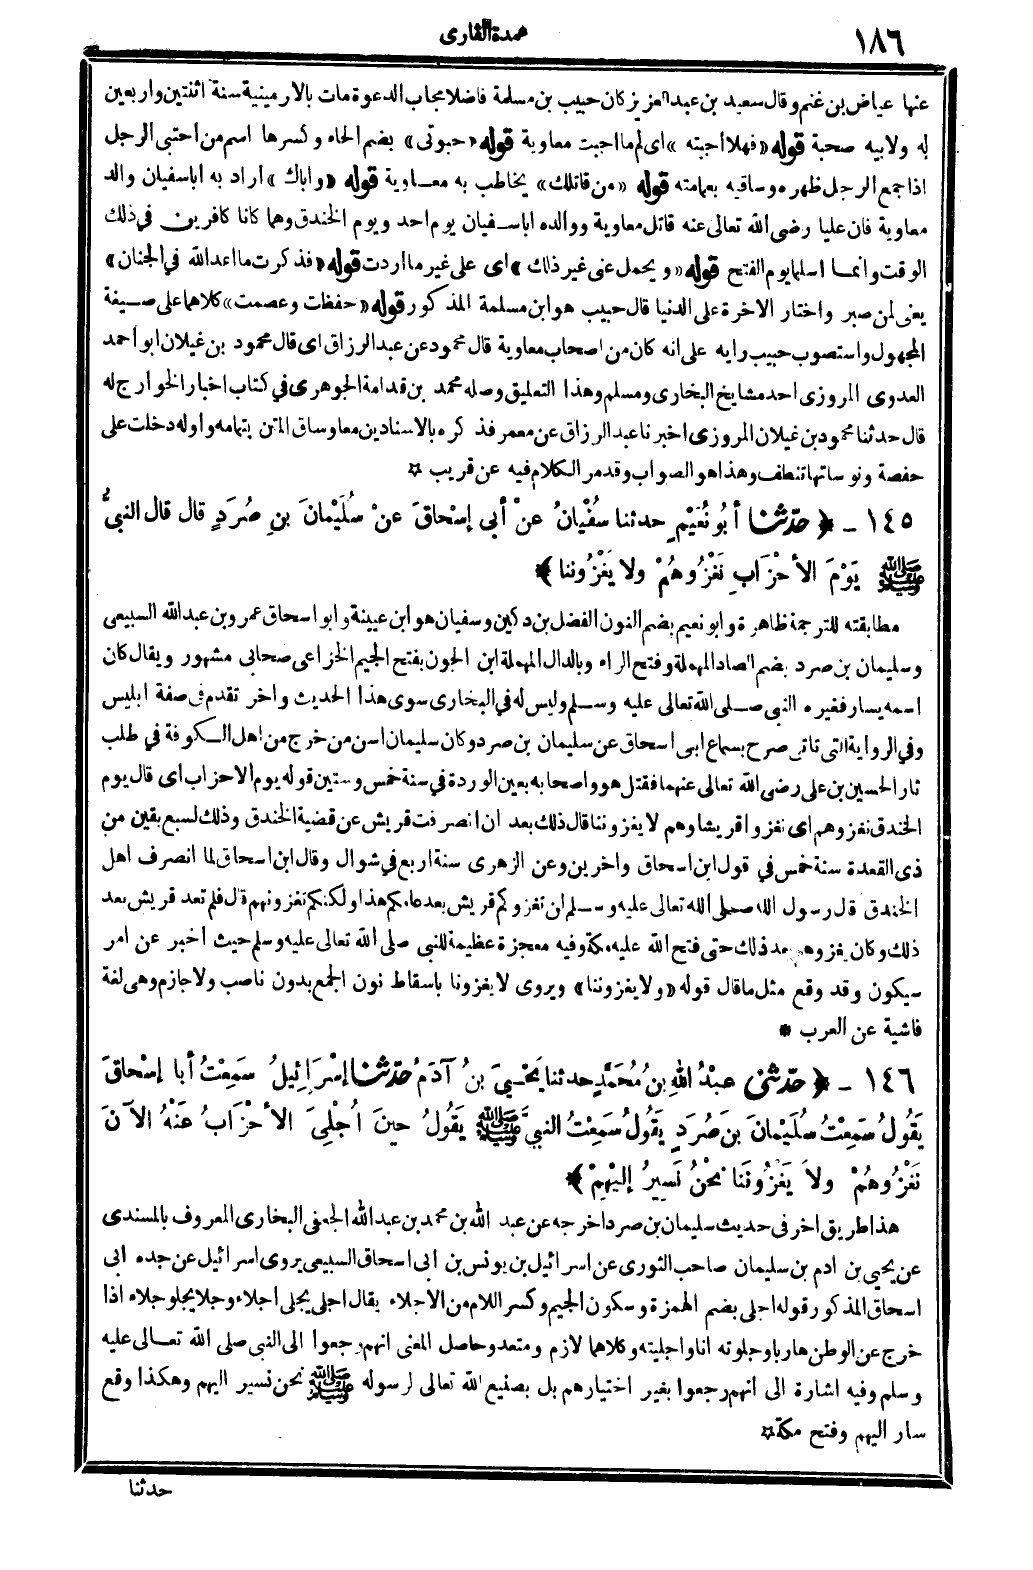 ١٨٦
عمدة القارى
عنها عياض بن غنم وقال سعيد بن عبد العزيز كان حبيب بن مسلمة فاضلا مجاب الدعوة مات بالارمينية سنة اثنتين واربعين
له ولابيه صحبة قوله «فهلا اجبته» اى لم ما اجبت معاوية قوله «حبوتى» بضم الحاء وكسرها اسم من احتبى الرجل
اذا جمع الرجل ظهره وساقيه بعمامته قوله «من قاتلك» يخاطب به معاوية قوله «واباك» اراد به اباسفيان والد
معاوية فان عليا رضى الله تعالى عنه قاتل معاوية ووالده اباسفيان يوم احد ويوم الخندق وهما كانا كافرين في ذلك
الوقت وانما اسلما يوم الفتح قوله «ويحمل عنى غير ذلك» اى على غير ما اردت قوله «فذكرت ما اعد الله في الجنان»
يعنى لمن صبر واختار الاخرة على الدنيا قال حبيب هو ابن مسلمة المذكور قوله «حفظت وعصمت» كلاهما على صيغة
المجهول واستصوب حبيب رايه على انه كان من اصحاب معاوية قال محمود عن عبد الرزاق اى قال محمود بن غيلان ابو احمد
العدوى المروزى احد مشايخ البخارى ومسلم وهذا التعليق وصله محمد بن قدامة الجوهرى في كتاب اخبار الخوارج له
قال حدثنا محمود بن غيلان المروزى اخبرنا عبد الرزاق عن معمر فذكره بالاسنادين معا وساق المتن بتمامه واوله دخلت على
حفصة ونوساتها تنطف وهذا هو الصواب وقد مر الكلام فيه عن قريب ☆
١٤٥ - ﴿ حدّثنا أبُو نُعَيْمٍ حدثنا سفْيانُ عنْ أبى إسْحاقَ عنْ سُلَيْمانَ بنِ صُرَدٍ قال قال النبىُّ
ﷺ يَوْمَ الأحْزَابِ نَغْزُوهُمْ ولا يَغْزُوننا ﴾
مطابقته للترجمة ظاهرة وابو نعيم بضم النون الفضل بن دكين وسفيان هو ابن عيينة وابو اسحاق عمرو بن عبد الله السبيعى
وسليمان بن صرد بضم الصاد المهملة وفتح الراء وبالدال المهملة ابن الجون بفتح الجيم الخزاعى صحابى مشهور ويقال كان
اسمه يسار فغيره النبى صلى الله تعالى عليه وسلم وليس له في البخارى سوى هذا الحديث واخر تقدم فى صفة ابليس
وفي الرواية التى تاتى صرح بسماع ابى اسحاق عن سليمان بن صرد وكان سليمان اسن من خرج من اهل الكوفة في طلب
ثار الحسين بن على رضى الله تعالى عنهما فقتل هو واصحابه بعين الوردة في سنة خمس وستين قوله يوم الاحزاب اى قال يوم
الخندق نغزوهم اى نغزو اقريشا وهم لا يغزوننا قال ذلك بعد ان انصرفت قريش عن قضية الخندق وذلك لسبع بقين من
ذى القعدة سنة خمس في قول ابن اسحاق واخرين وعن الزهرى سنة اربع في شوال وقال ابن اسحاق لما انصرف اهل
الخندق قال رسول الله صلى الله تعالى عليه وسلم لن تغزوكم قريش بعد عامكم هذا ولكنكم تغزونهم قال فلم تعد قريش بعد
ذلك وكان يغزوهم بعد ذلك حتى فتح الله عليه مكة وفيه معجزة عظيمة للنبى صلى الله تعالى عليه وسلم حيث اخبر عن امر
سيكون وقد وقع مثل ما قال قوله «ولا يغزوننا» ويروى لا يغزونا باسقاط نون الجمع بدون ناصب ولا جازم وهى لغة
فاشية عن العرب *
١٤٦ - ﴿ حدّثنى عبْدُ اللهِ بنُ مُحَمَّدٍ حدثنا يَحْييَ بنُ آدَمُ حدّثنا إسْرَائِيلُ سَمِعْتُ أبا إسْحاقَ
يَقُولُ سَمِعْتُ سُلَيْمانَ بنَ صُرَدٍ يَقُولُ سَمِعْتُ النبىَّ ﷺ يَقُولُ حينَ أُجْلِىَ الأحْزَابُ عَنْهُ الآنَ
نَغْزُوهُمْ ولاَ يَغْزُونَنا نحْنُ نَسيرُ إليْهِمْ ﴾
هذا طريق اخر فى حديث سليمان بن صرد اخرجه عن عبد الله بن محمد بن عبد الله الجعفى البخارى المعروف بالمسندى
عن يحيى بن ادم بن سليمان صاحب الثورى عن اسرائيل بن يونس بن ابى اسحاق السبيعى يروى اسرائيل عن جده ابى
اسحاق المذكور قوله اجلى بضم الهمزة وسكون الجيم وكسر اللام من الاجلاء يقال اجلى يجلى اجلاء وجلا يجلو جلاء اذا
خرج عن الوطن هاربا وجلوته انا واجليته وكلاهما لازم ومتعد وحاصل المعنى انهم رجعوا الى النبى صلى الله تعالى عليه
وسلم وفيه اشارة الى انهم رجعوا بغير اختيارهم بل بصنيع الله تعالى لرسوله ﷺ نحن نسير اليهم وهكذا وقع
سار اليهم وفتح مكة ☆
حدثنا